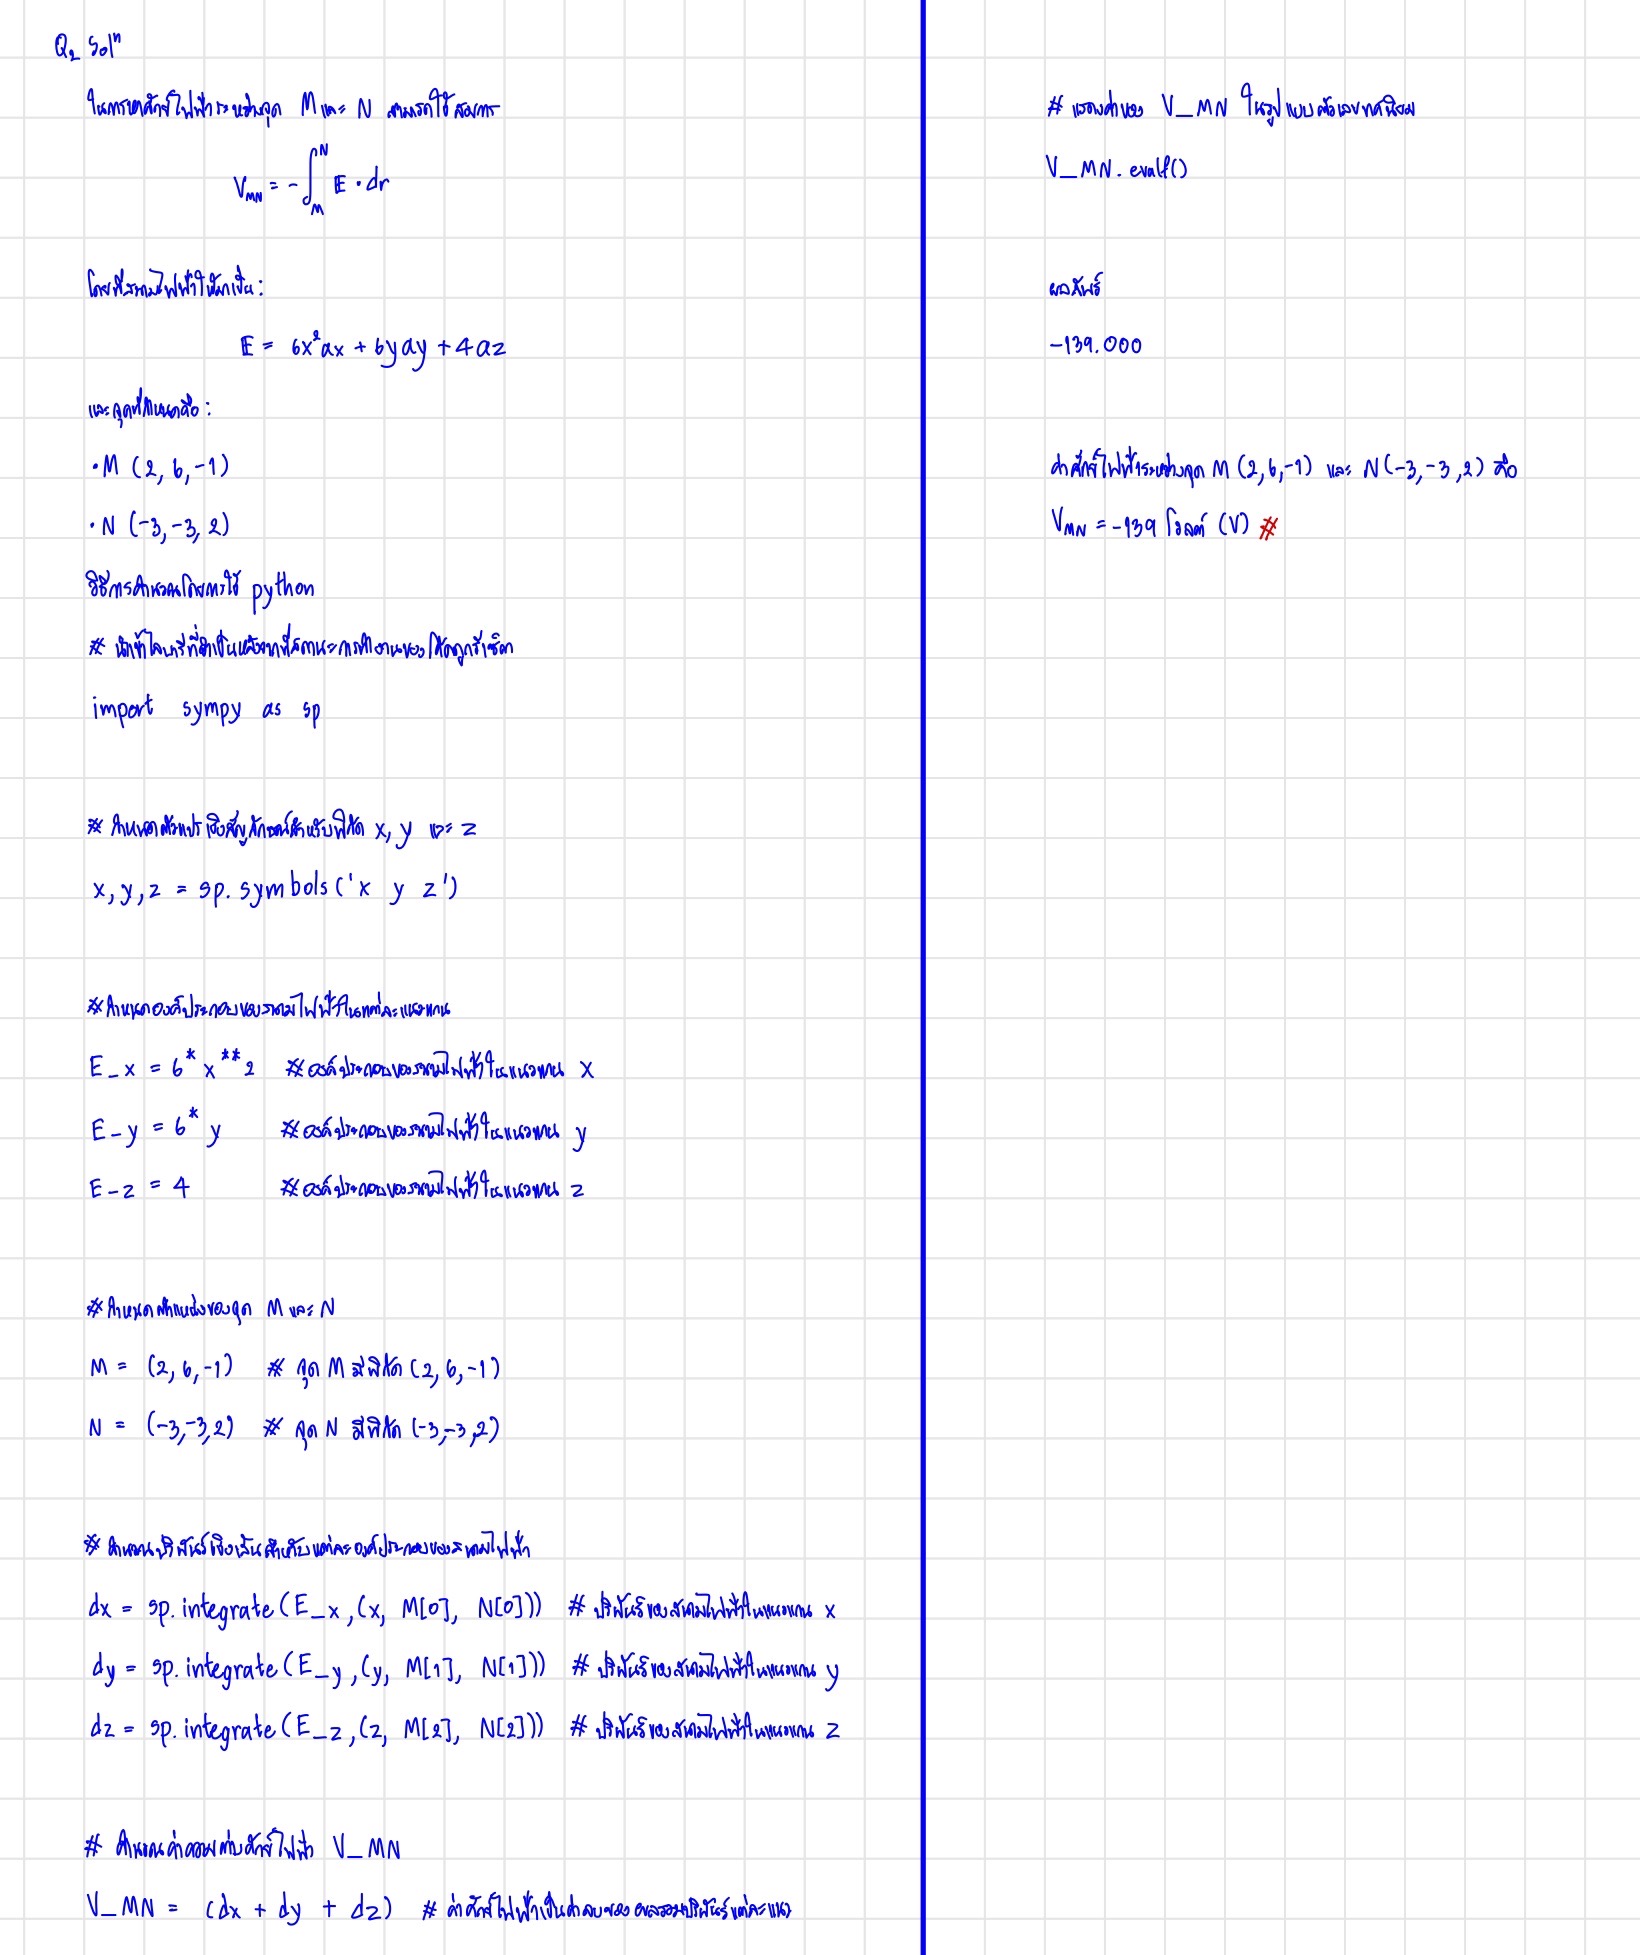 Q₂ Solⁿ
ในการหาศักย์ไฟฟ้าระหว่างจุด M และ N สามารถใช้สมการ
V_MN = -∫_M^N E · dr
โดยที่สนามไฟฟ้าให้มาเป็น :
E = 6x²ax + 6yay + 4az
และจุดที่กำหนดคือ :
• M (2, 6, -1)
• N (-3, -3, 2)
วิธีการคำนวณโดยการใช้ python
# นำเข้าไลบรารีที่จำเป็นหลังจากที่สถานะการทำงานของโค้ดถูกรีเซ็ต
import sympy as sp
# กำหนดตัวแปรเชิงสัญลักษณ์สำหรับพิกัด x, y และ z
x, y, z = sp.symbols('x y z')
# กำหนดองค์ประกอบของสนามไฟฟ้าในแต่ละแนวแกน
E_x = 6*x**2 # องค์ประกอบของสนามไฟฟ้าในแนวแกน x
E_y = 6*y # องค์ประกอบของสนามไฟฟ้าในแนวแกน y
E_z = 4 # องค์ประกอบของสนามไฟฟ้าในแนวแกน z
# กำหนดตำแหน่งของจุด M และ N
M = (2, 6, -1) # จุด M มีพิกัด (2, 6, -1)
N = (-3, -3, 2) # จุด N มีพิกัด (-3, -3, 2)
# คำนวณปริพันธ์เชิงเส้นสำหรับแต่ละองค์ประกอบของสนามไฟฟ้า
dx = sp.integrate(E_x, (x, M[0], N[0])) # ปริพันธ์ของสนามไฟฟ้าในแนวแกน x
dy = sp.integrate(E_y, (y, M[1], N[1])) # ปริพันธ์ของสนามไฟฟ้าในแนวแกน y
dz = sp.integrate(E_z, (z, M[2], N[2])) # ปริพันธ์ของสนามไฟฟ้าในแนวแกน z
# คำนวณค่าความต่างศักย์ไฟฟ้า V_MN
V_MN = (dx + dy + dz) # ค่าศักย์ไฟฟ้าเป็นค่าลบของผลรวมปริพันธ์แต่ละแนว
# แสดงค่าของ V_MN ในรูปแบบตัวเลขทศนิยม
V_MN.evalf()
ผลลัพธ์
-139.000
ค่าศักย์ไฟฟ้าระหว่างจุด M (2, 6, -1) และ N (-3, -3, 2) คือ
V_MN = -139 โวลต์ (V) #